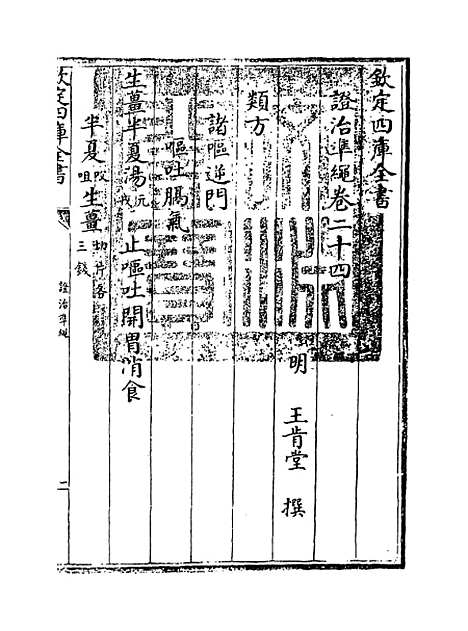 欽定四庫全書
證治準繩卷二十四
明 王肯堂 撰
類方
諸嘔逆門
嘔吐膈氣
生薑半夏湯 止嘔吐開胃消食
半夏 㕮咀 生薑 切片各三錢
欽定四庫全書
證治準繩
二